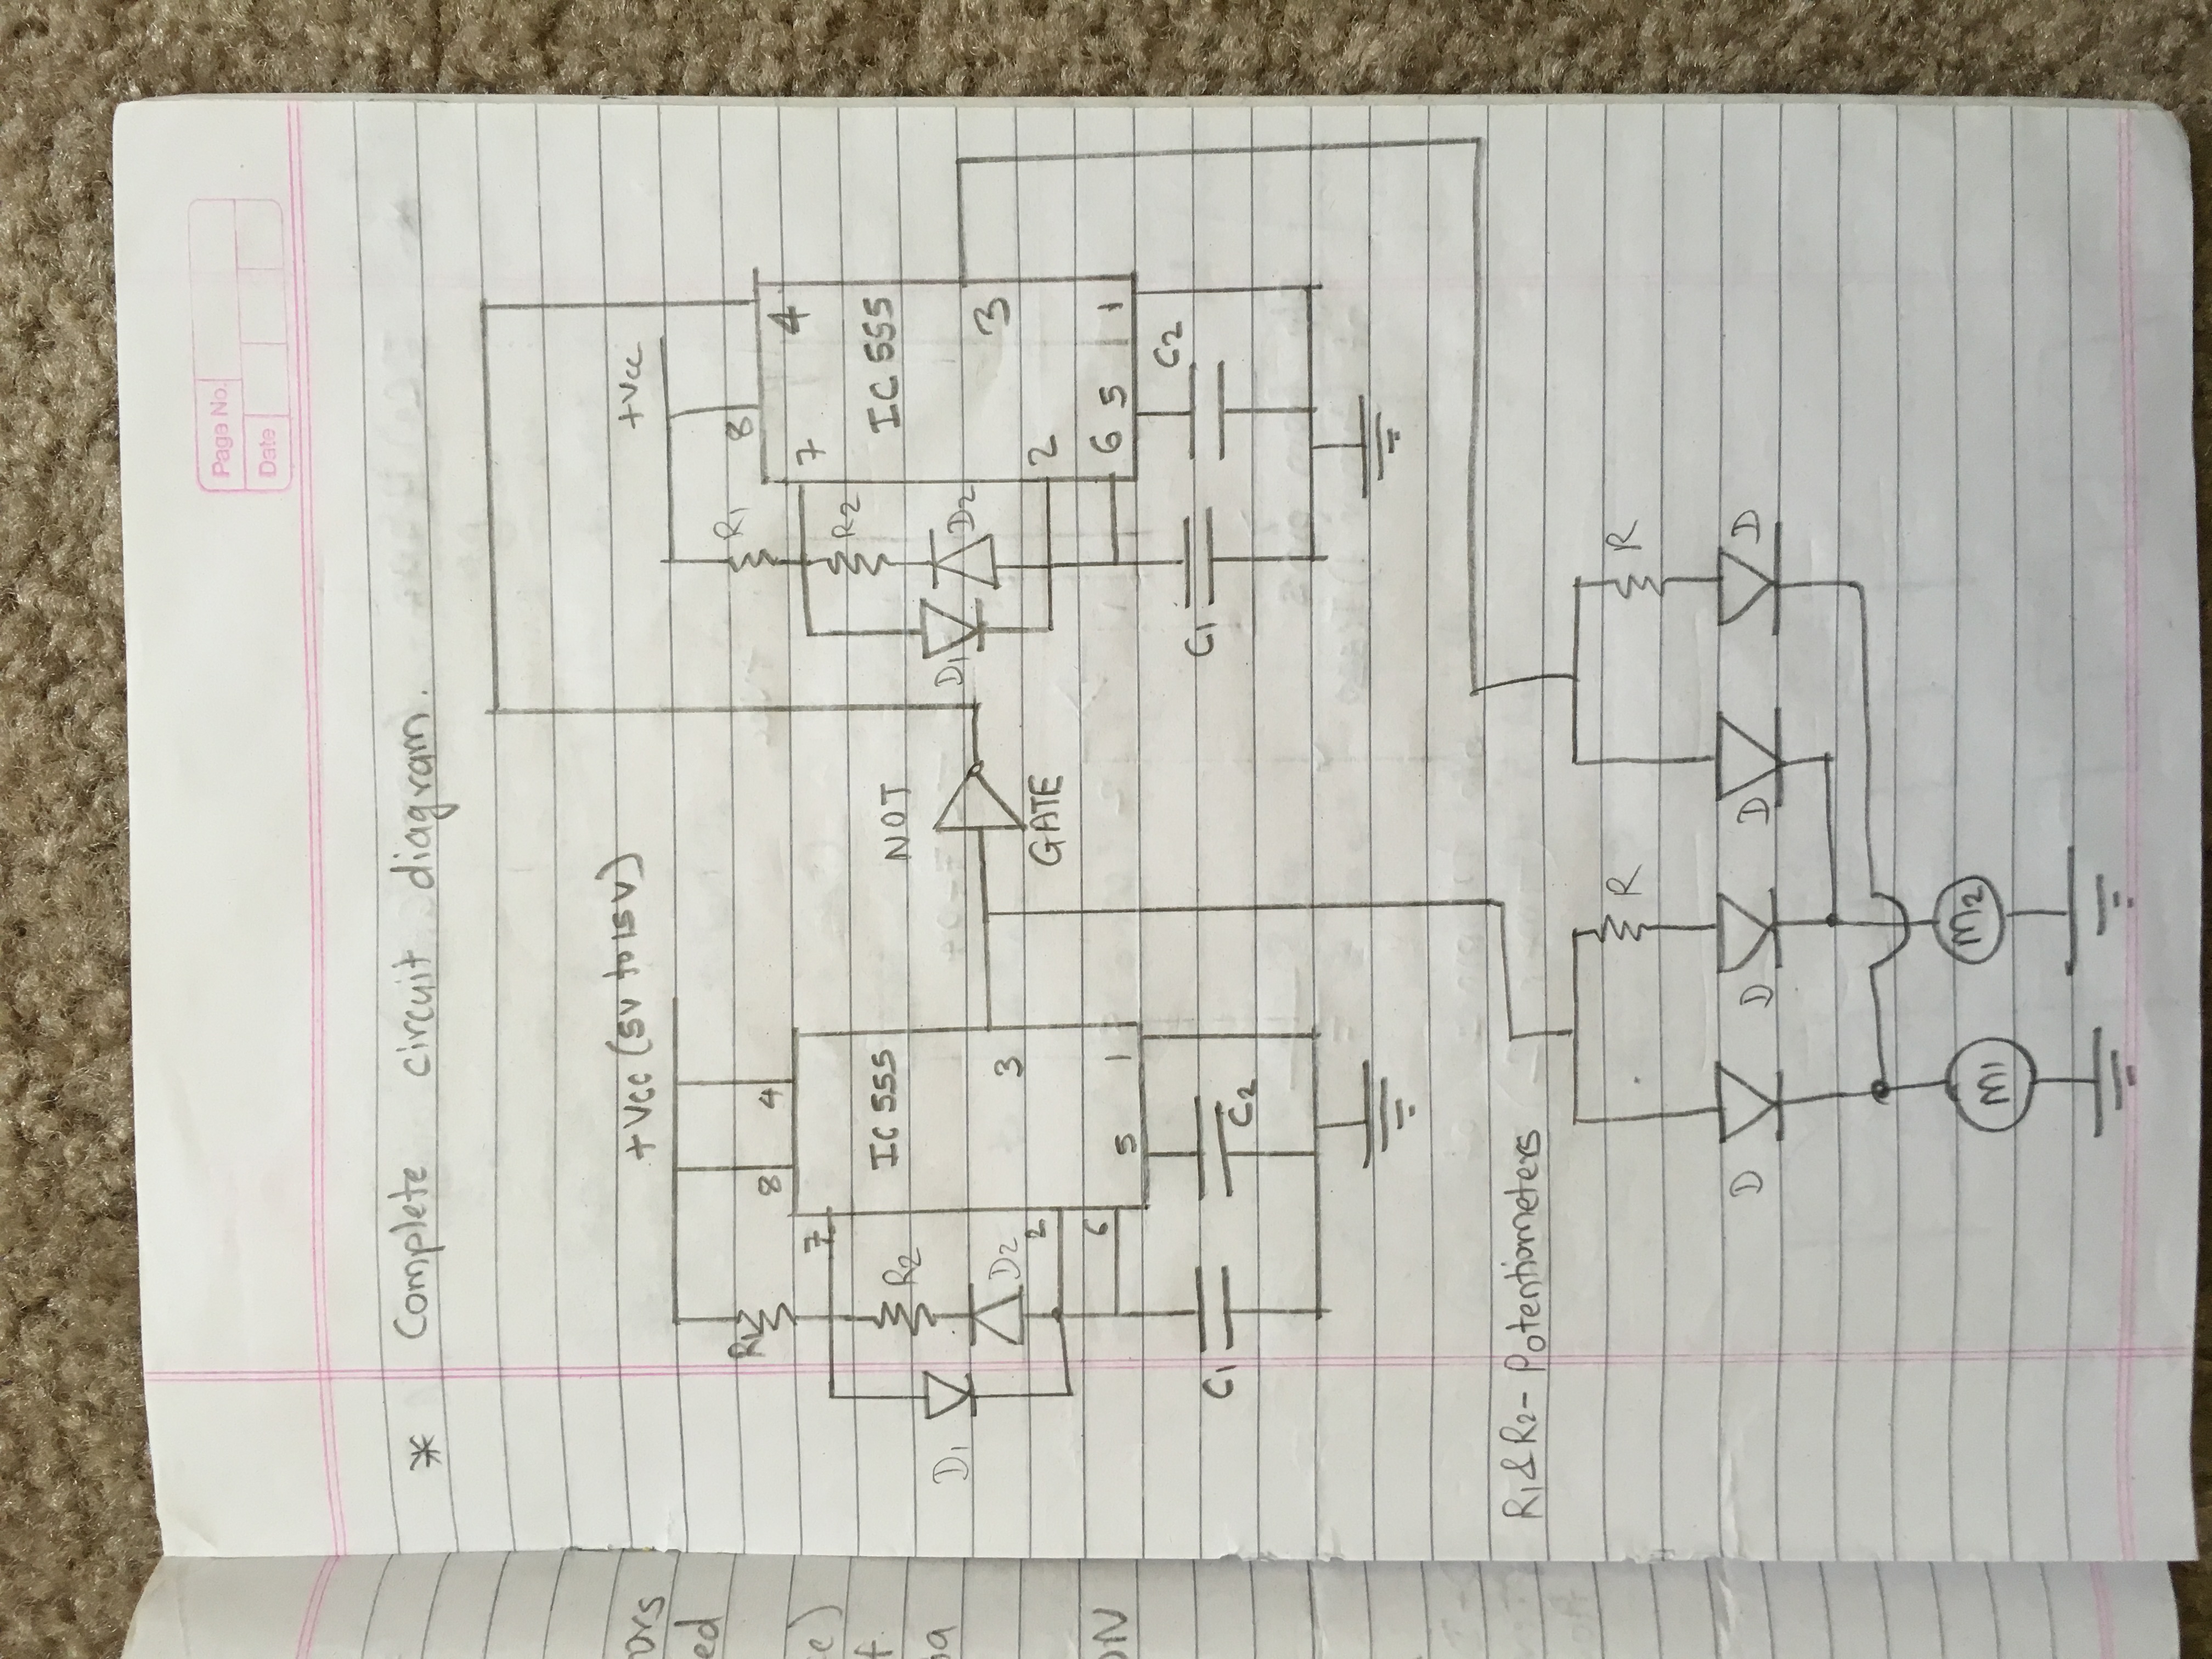 ors
ed
e)
f
a
ON
Page No.
Date
* Complete circuit diagram.
+Vcc (5V to 15V)
+Vcc
R1
8
4
7
IC 555
R2
D1
D2
2
3
6
5
1
C1
C2
NOT
GATE
R1
8
4
7
R2
IC 555
D1
D2
3
2
6
5
1
C1
C2
R1 & R2 - Potentiometers
R
R
D
D
D
D
M1
M2